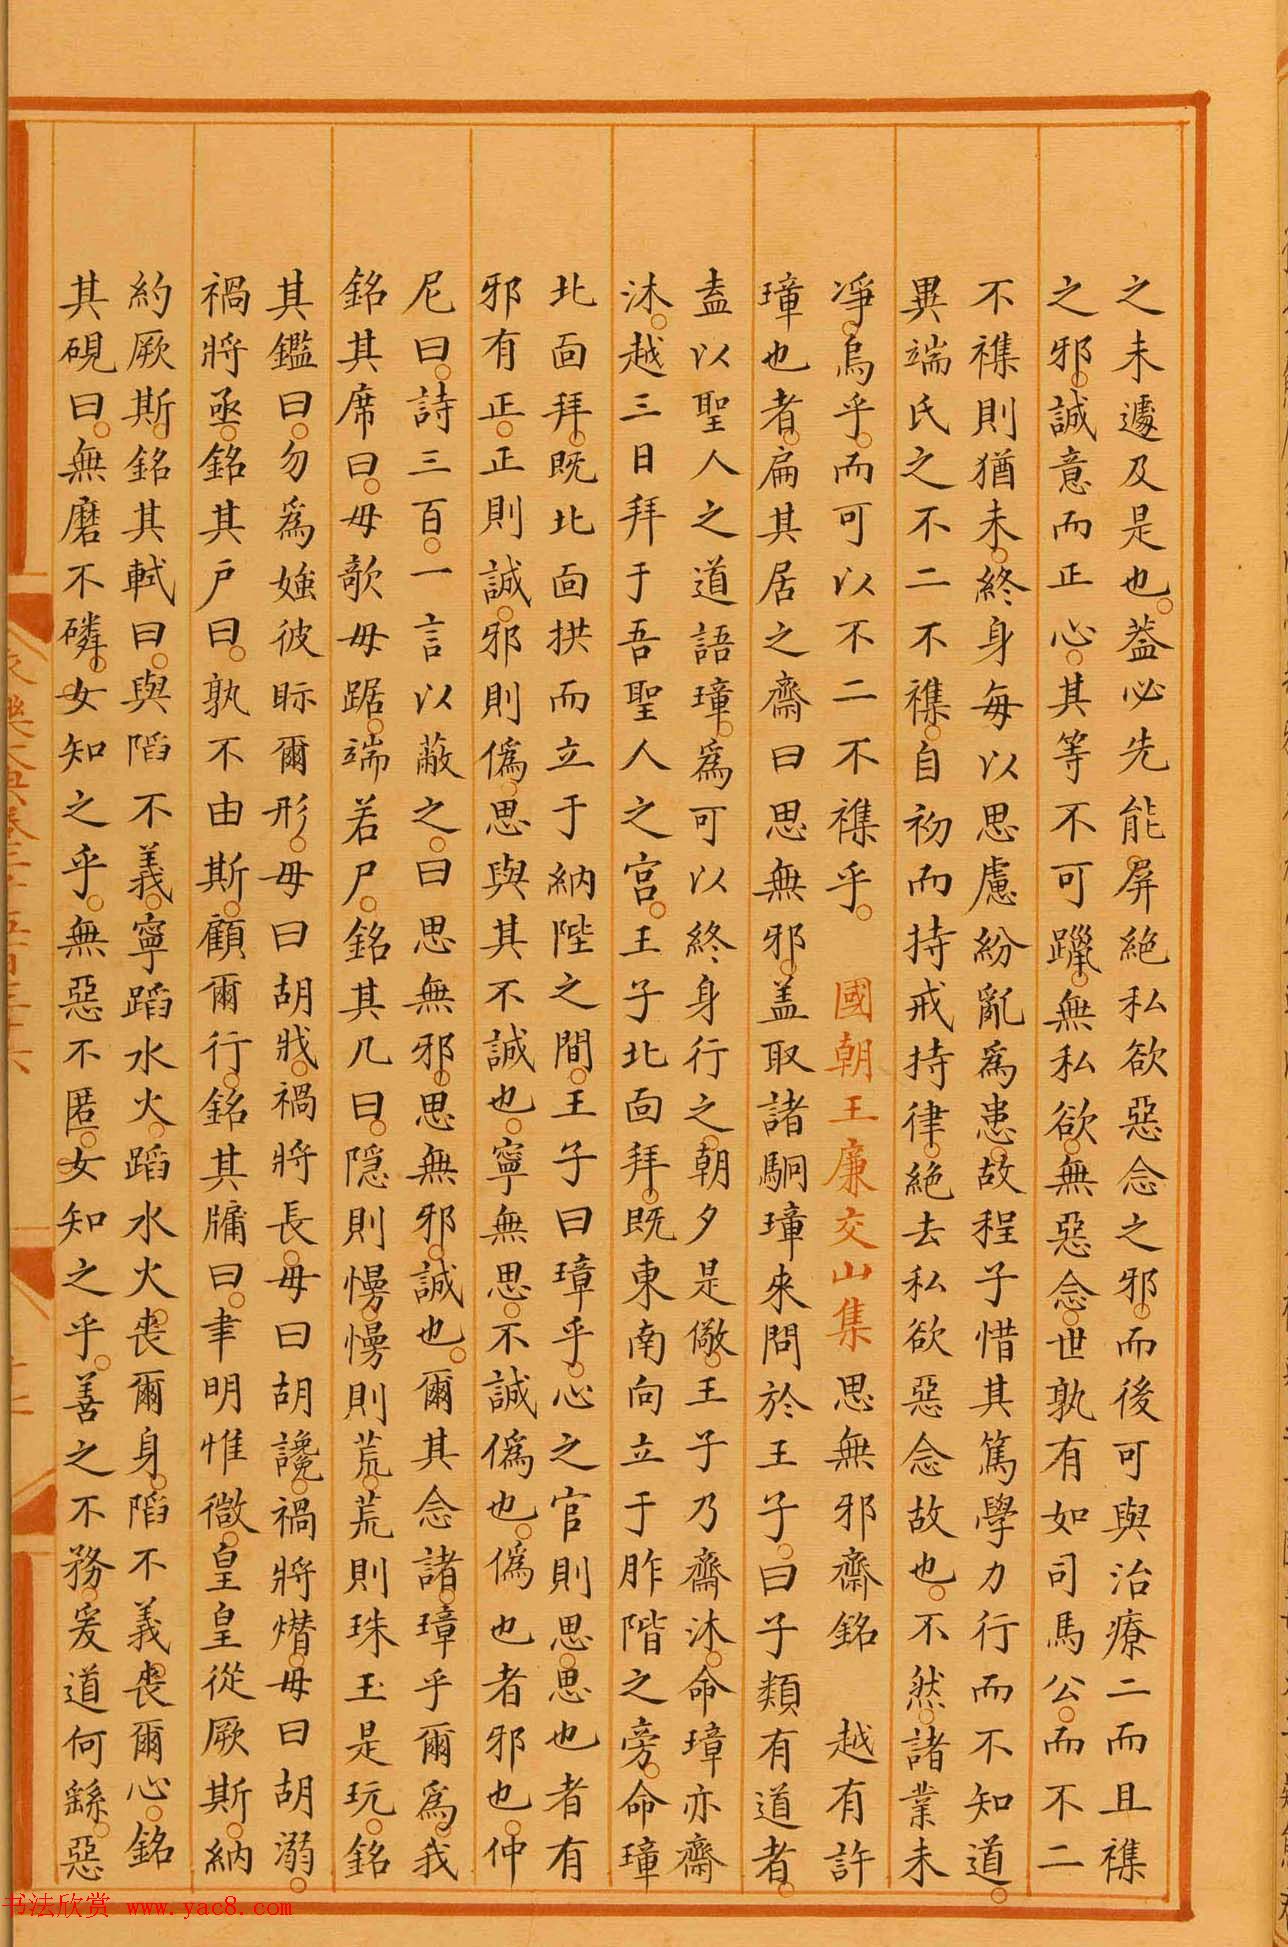 之未遽及是也。蓋必先能屏絕私欲惡念之邪。而後可與治療二而且襍
之邪。誠意而正心。其等不可躐。無私欲。無惡念。世孰有如司馬公。而不二
不襍則猶未。終身每以思慮紛亂爲患。故程子惜其篤學力行而不知道。
異端氏之不二不襍。自初而持戒持律。絕去私欲惡念故也。不然。諸業未
凈。烏乎。而可以不二不襍乎。 國朝王廉交山集 思無邪齋銘 越有許
璋也者。扁其居之齋曰思無邪。盖取諸駉。璋來問於王子。曰子類有道者。
盍以聖人之道語璋。爲可以終身行之。朝夕是儆。王子乃齋沐。命璋亦齋
沐。越三日拜于吾聖人之宮。王子北面拜。既東南向立于阼階之旁。命璋
北面拜。既北面拱而立于納陛之間。王子曰璋乎。心之官則思。思也者有
邪有正。正則誠。邪則僞。思與其不誠也。寧無思。不誠僞也。僞也者邪也。仲
尼曰。詩三百。一言以蔽之。曰思無邪。思無邪。誠也。爾其念諸。璋乎爾爲。我
銘其席曰。毋欹毋踞。端若尸。銘其几曰。隱則慢。慢則荒。荒則珠玉是玩。銘
其鑑曰。勿爲媸彼眎爾形。毋曰胡戕。禍將長。毋曰胡讒。禍將熸。毋曰胡溺。
禍將亟。銘其戶曰。孰不由斯。顧爾行。銘其牖曰。聿明惟徵。皇皇從厥斯。納
約厥斯。銘其軾曰。與陷不義。寧蹈水火。蹈水火。喪爾身。陷不義。喪爾心。銘
其硯曰。無磨不磷。女知之乎。無惡不匿。女知之乎。善之不務。爰道何繇。惡
书法欣赏 www.yac8.com